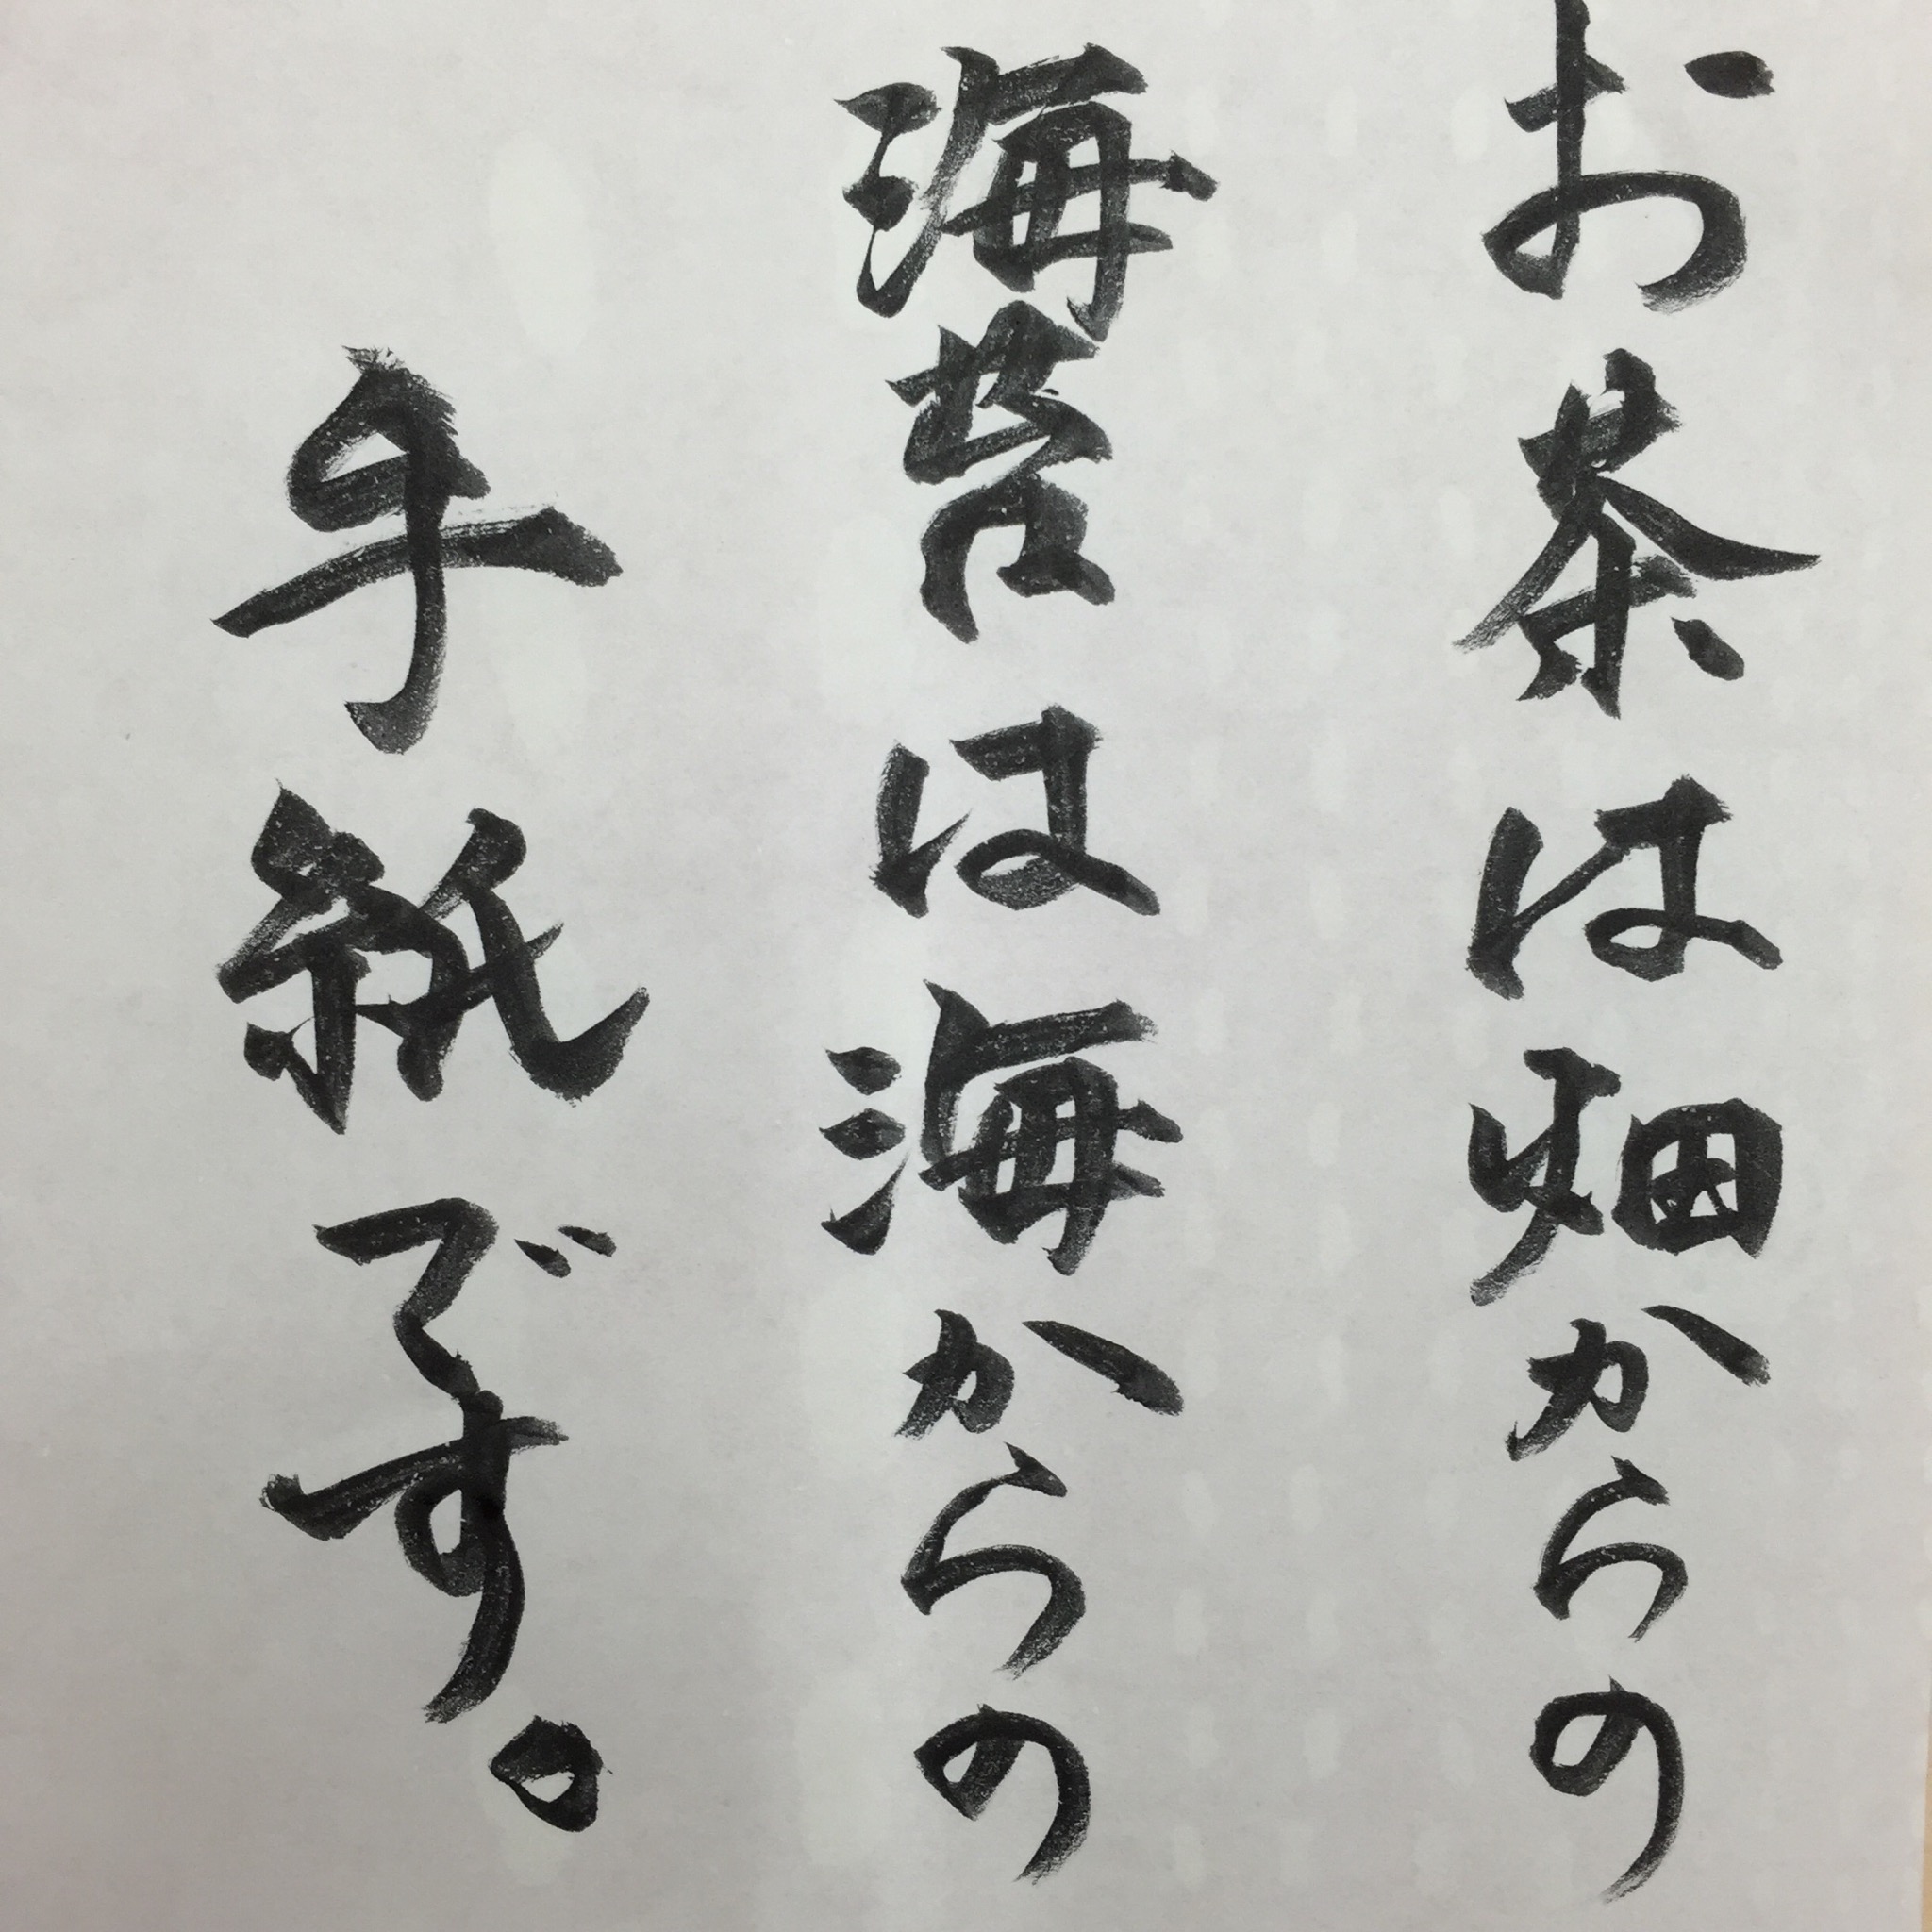 お茶は畑からの
海苔は海からの
手紙です。